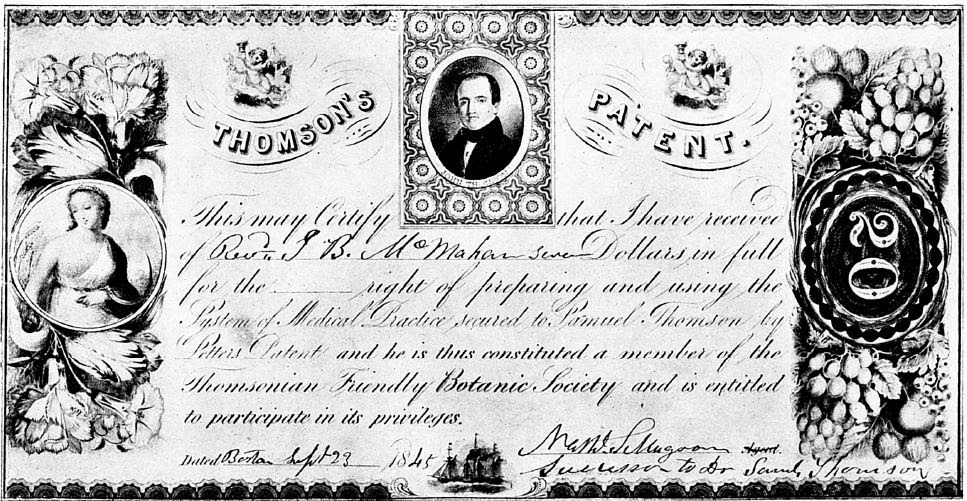 THOMSON'S PATENT.
This may Certify that I have received
of Revd. J. B. McMahan seven Dollars, in full
for the right of preparing and using the
System of Medical Practice secured to Samuel Thomson by
Letters Patent and he is thus constituted a member of the
Thomsonian Friendly Botanic Society and is entitled
to participate in its privileges.
Dated Boston Sept 23 1845
Agent.
Successor to Dr Saml Thomson
20